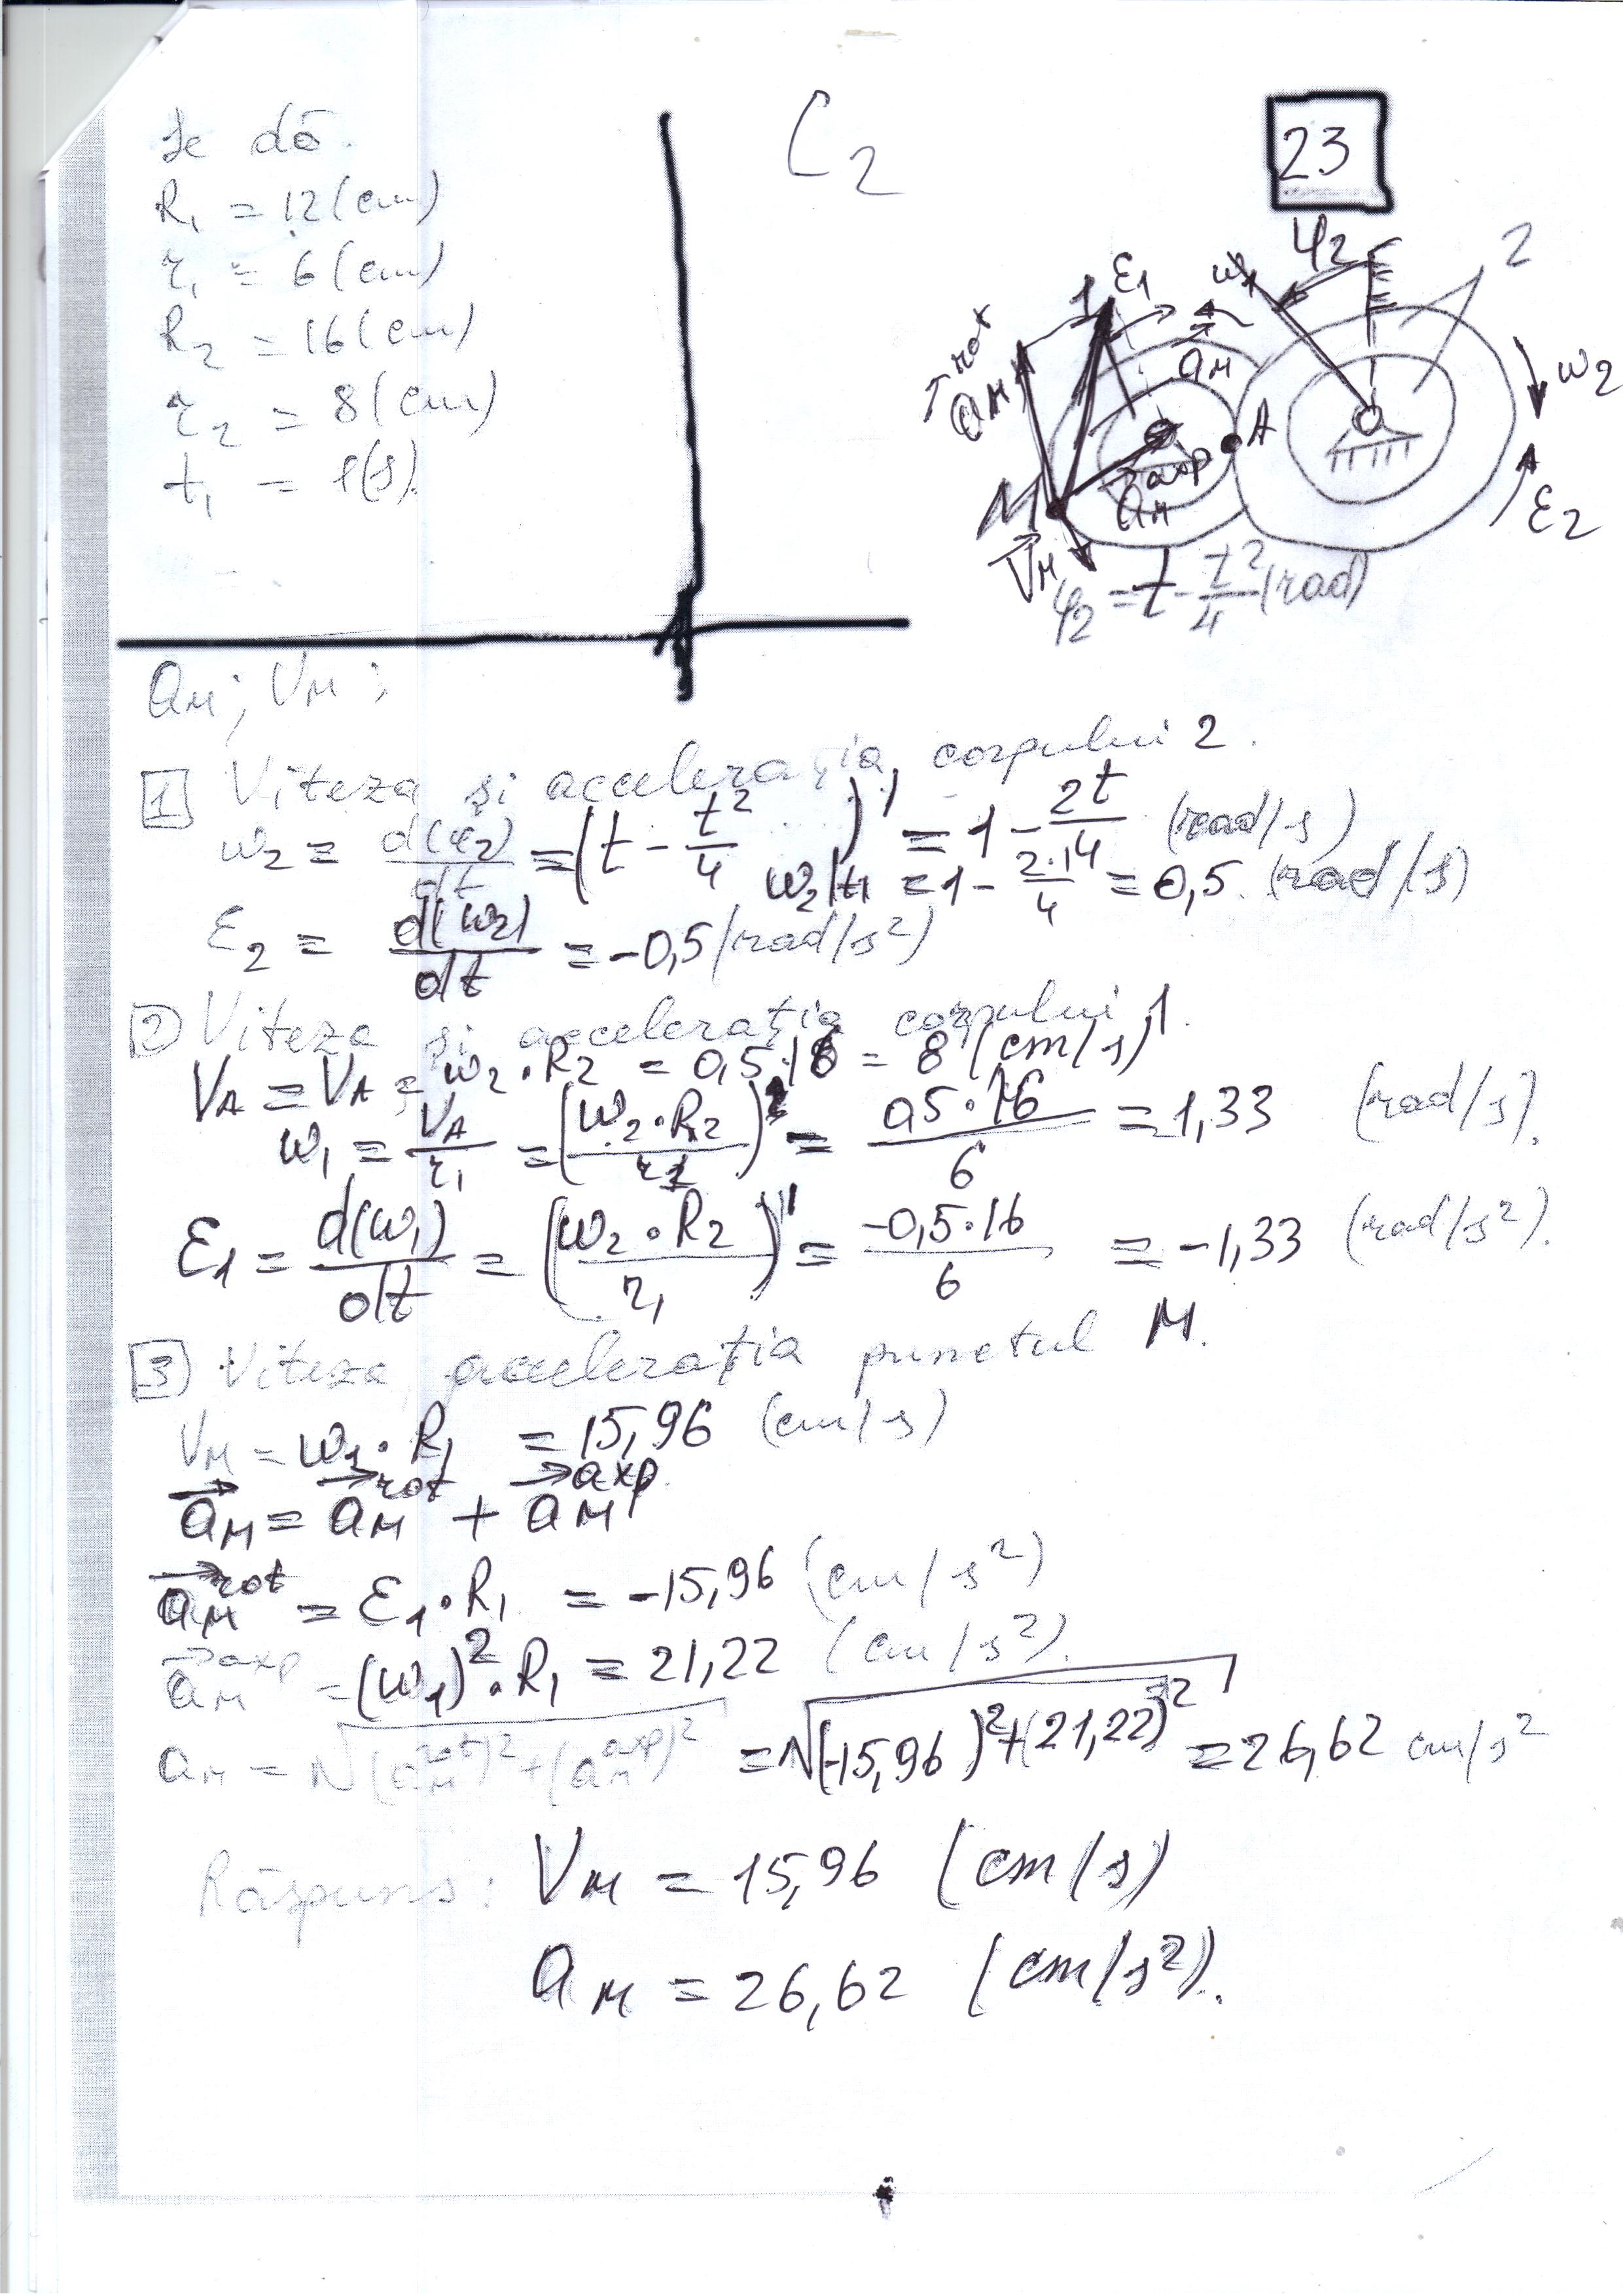 Se dă.
R₁ = 12 (cm)
r₁ = 6 (cm)
R₂ = 16 (cm)
r₂ = 8 (cm)
t₁ = 1 (s).
C₂
23
φ₂
2
1
ε₁
ω₁
ω₂
a_M^rot
a_M
A
a_M^axp
M
V_M
ε₂
φ₂ = t - t²/4 (rad)
a_M; V_M;
1 Viteza și accelerația, corpului 2.
ω₂ = d(φ₂)/dt = (t - t²/4)' = 1 - 2t/4 (rad/s)
ω₂|t₁ = 1 - 2·1/4 = 0,5. (rad/s)
ε₂ = d(ω₂)/dt = -0,5 (rad/s²)
2 Viteza și accelerația corpului 1.
V_A = V_A = ω₂·R₂ = 0,5·16 = 8 (cm/s)
ω₁ = V_A/r₁ = (ω₂·R₂/r₁) = 0,5·16/6 = 1,33 (rad/s).
ε₁ = d(ω₁)/dt = (ω₂·R₂/r₁)' = -0,5·16/6 = -1,33 (rad/s²).
3 Viteza accelerația punctul M.
V_M = ω₁·R₁ = 15,96 (cm/s)
a_M = a_M^rot + a_M^axp
a_M^rot = ε₁·R₁ = -15,96 (cm/s²)
a_M^axp = (ω₁)²·R₁ = 21,22 (cm/s²).
a_M = √(a_M^rot)² + (a_M^axp)² = √(-15,96)² + (21,22)² = 26,62 cm/s²
Răspuns: V_M = 15,96 (cm/s)
a_M = 26,62 (cm/s²).